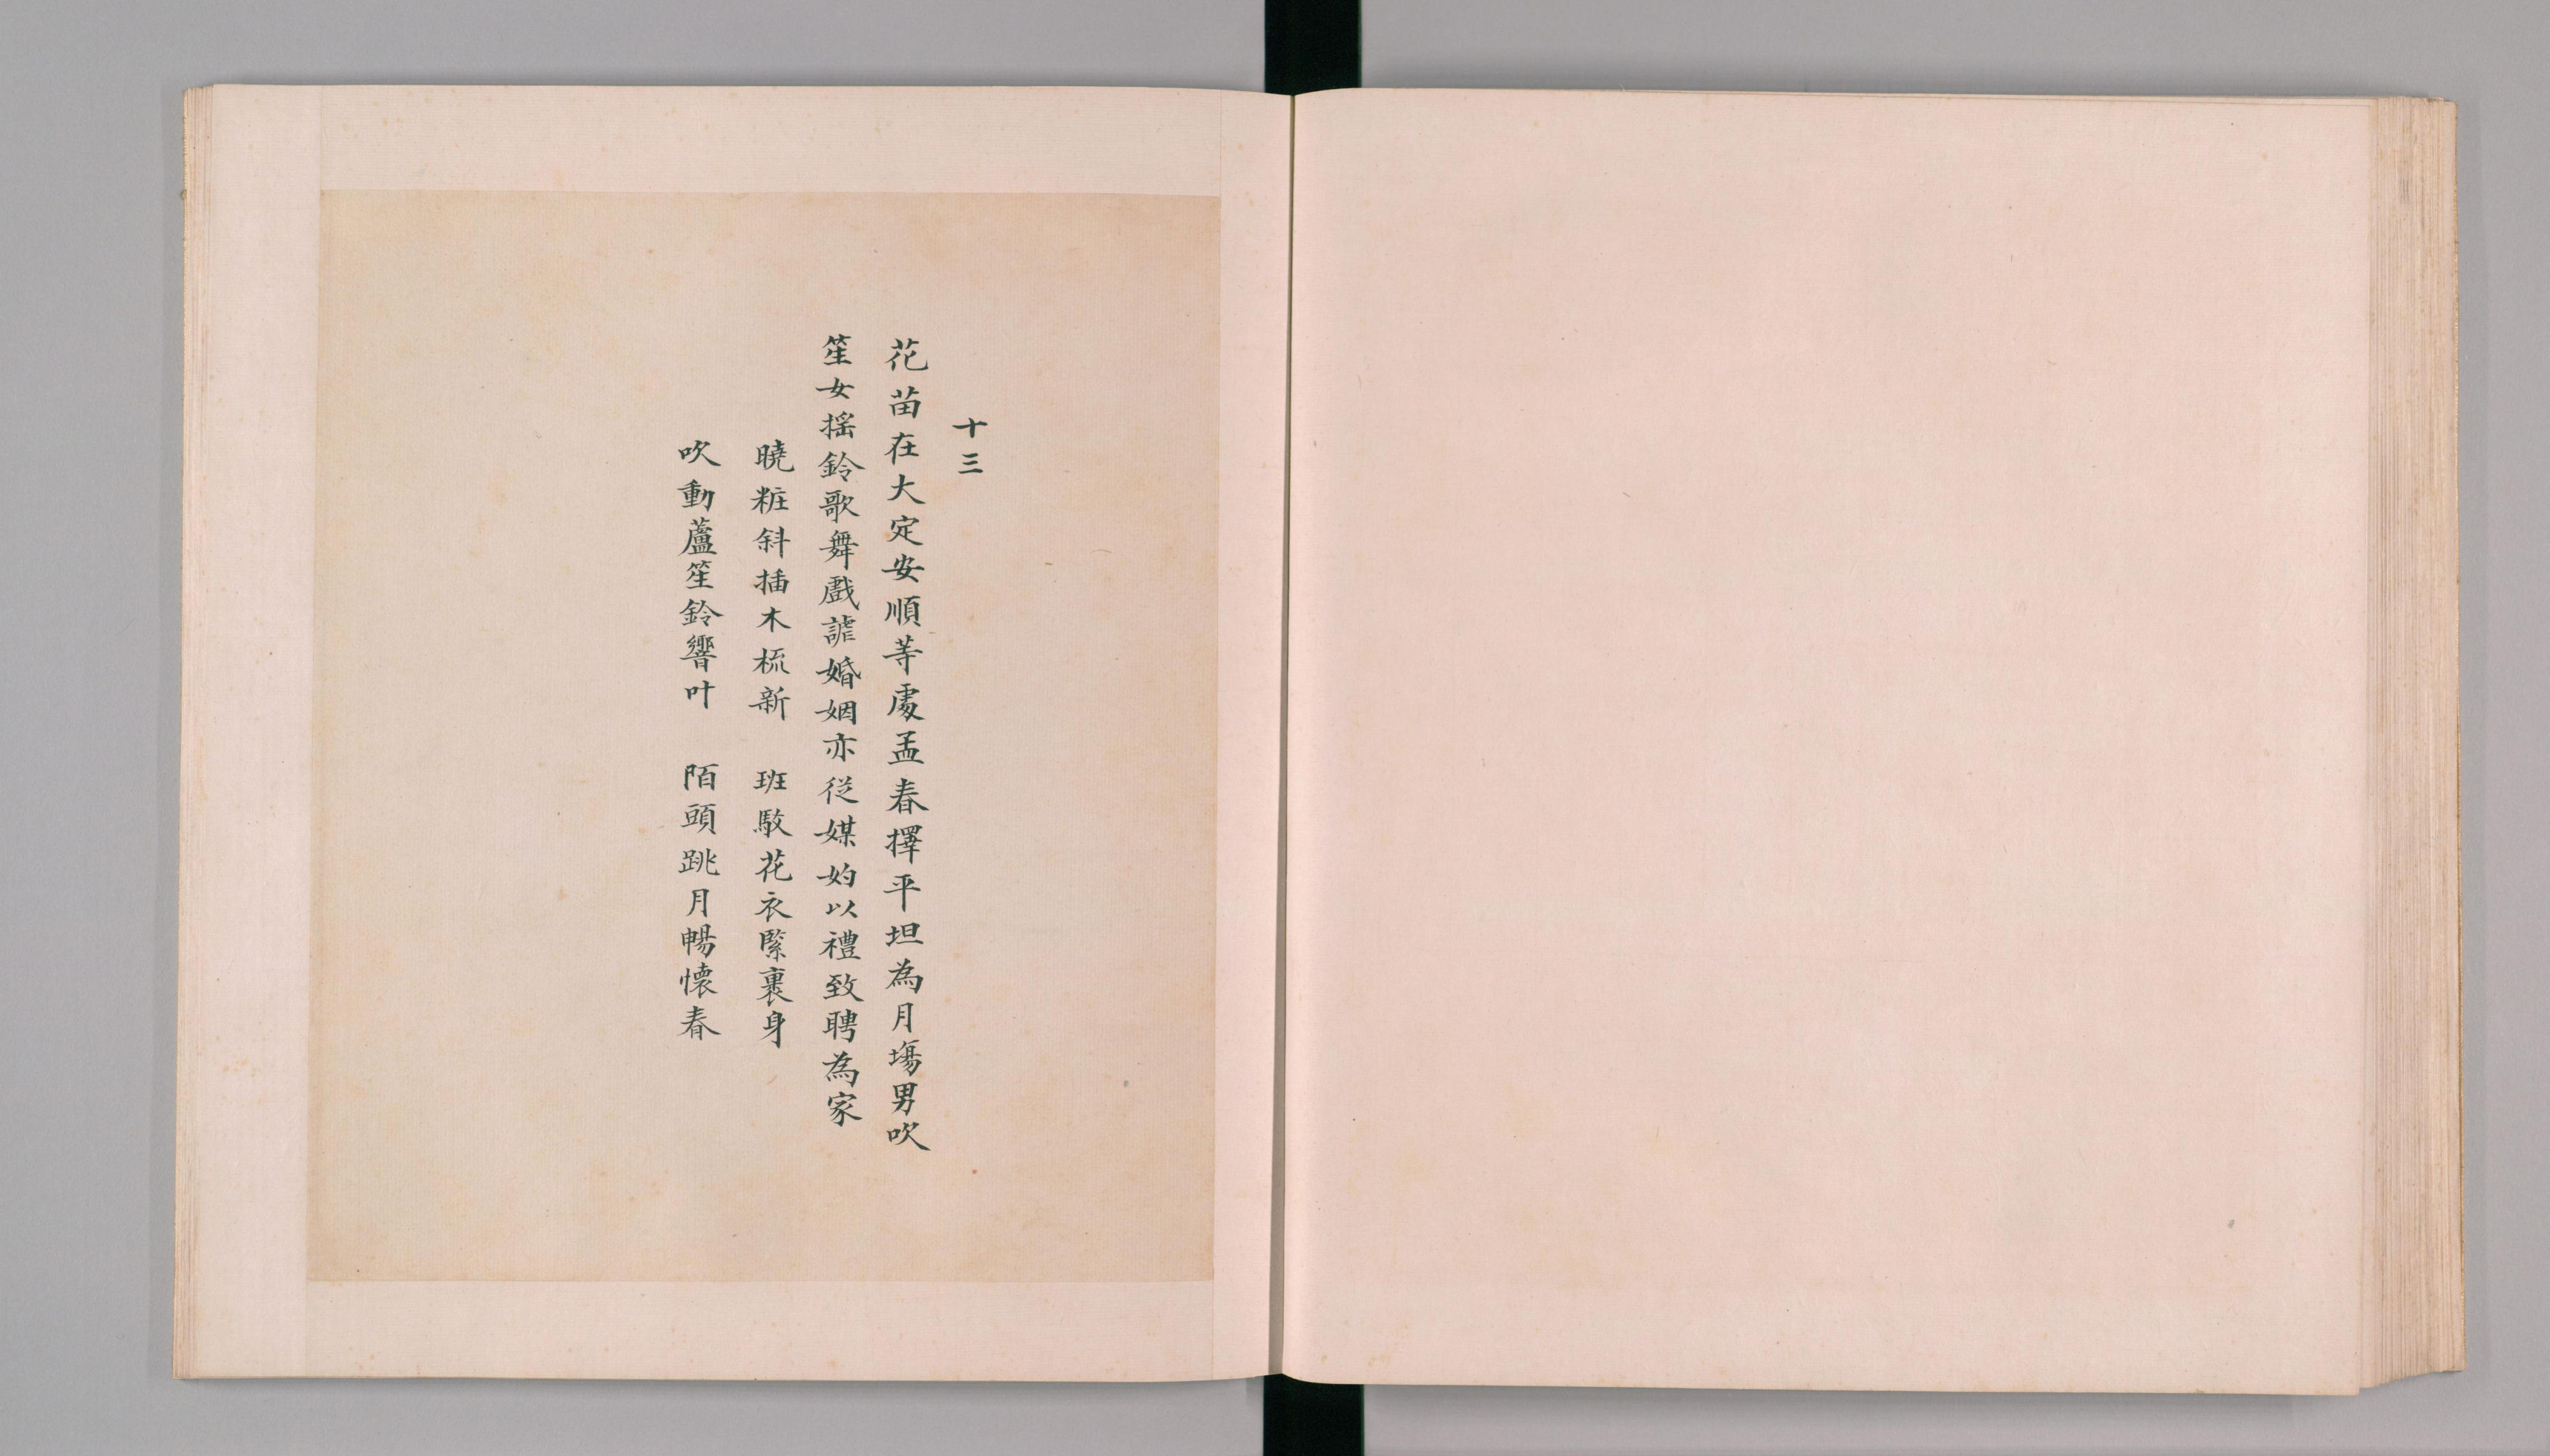 十三
花苗在大定安順等處孟春擇平坦為月塲男吹
笙女揺鈴歌舞戲謔婚姻亦從媒妁以禮致聘為家
曉粧斜插木梳新　班駁花衣緊裹身
吹動蘆笙鈴響叶　陌頭跳月暢懷春